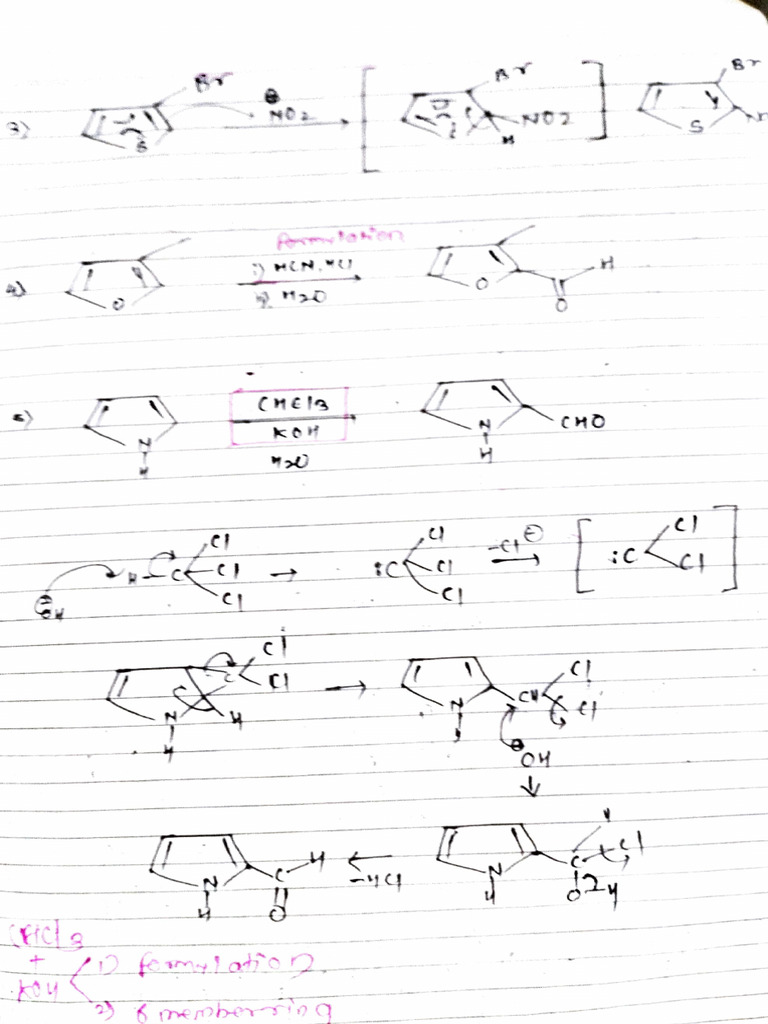 3) Br ⊖NO2 [ S Br NO2 H ] S Br
4) O formulation i) HCN, HCl ii) H2O O H O
5) N H CHCl3 KOH H2O N H CHO
⊖OH H-C Cl Cl Cl → :C Cl Cl Cl -Cl⊖ → [ :C Cl Cl ]
N H C Cl Cl H → N CH Cl Cl
⊖OH
↓
N H C H O ← -HCl N H C Cl O H
CHCl3
+ 1) formylation
KOH 2) 6 member ring